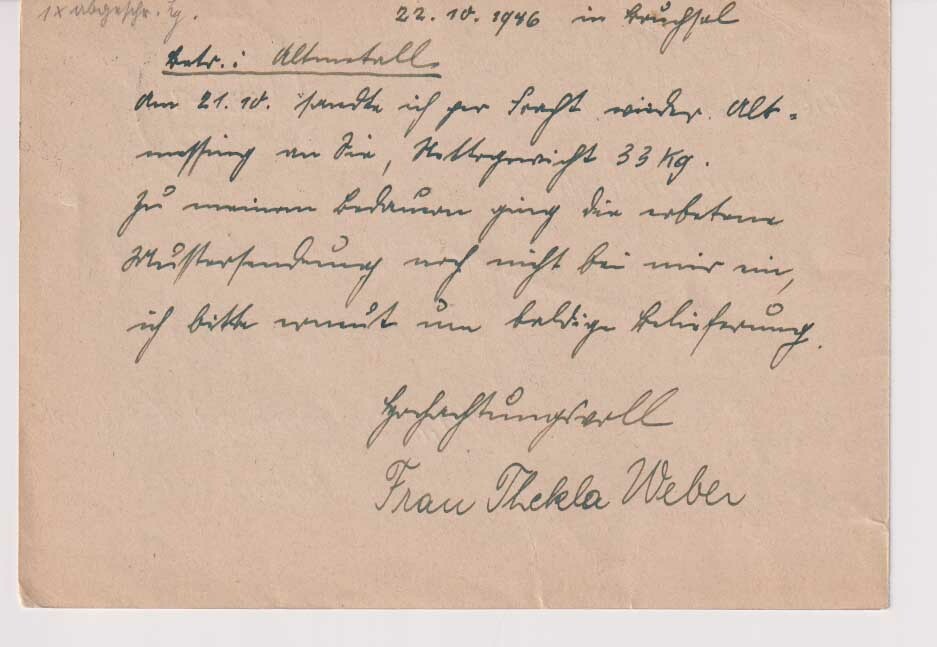 1x abgeschr. Lg.
22.10.1946 in Bruchsal
Betr.: Altmetall.
Am 21.10. sandte ich per Fracht wieder Alt-
messing an Sie, Nettogewicht 33 Kg.
Zu meinem Bedauern ging die erbetene
Mustersendung noch nicht bei mir ein,
ich bitte erneut um baldige Belieferung.
Hochachtungsvoll
Frau Thekla Weber